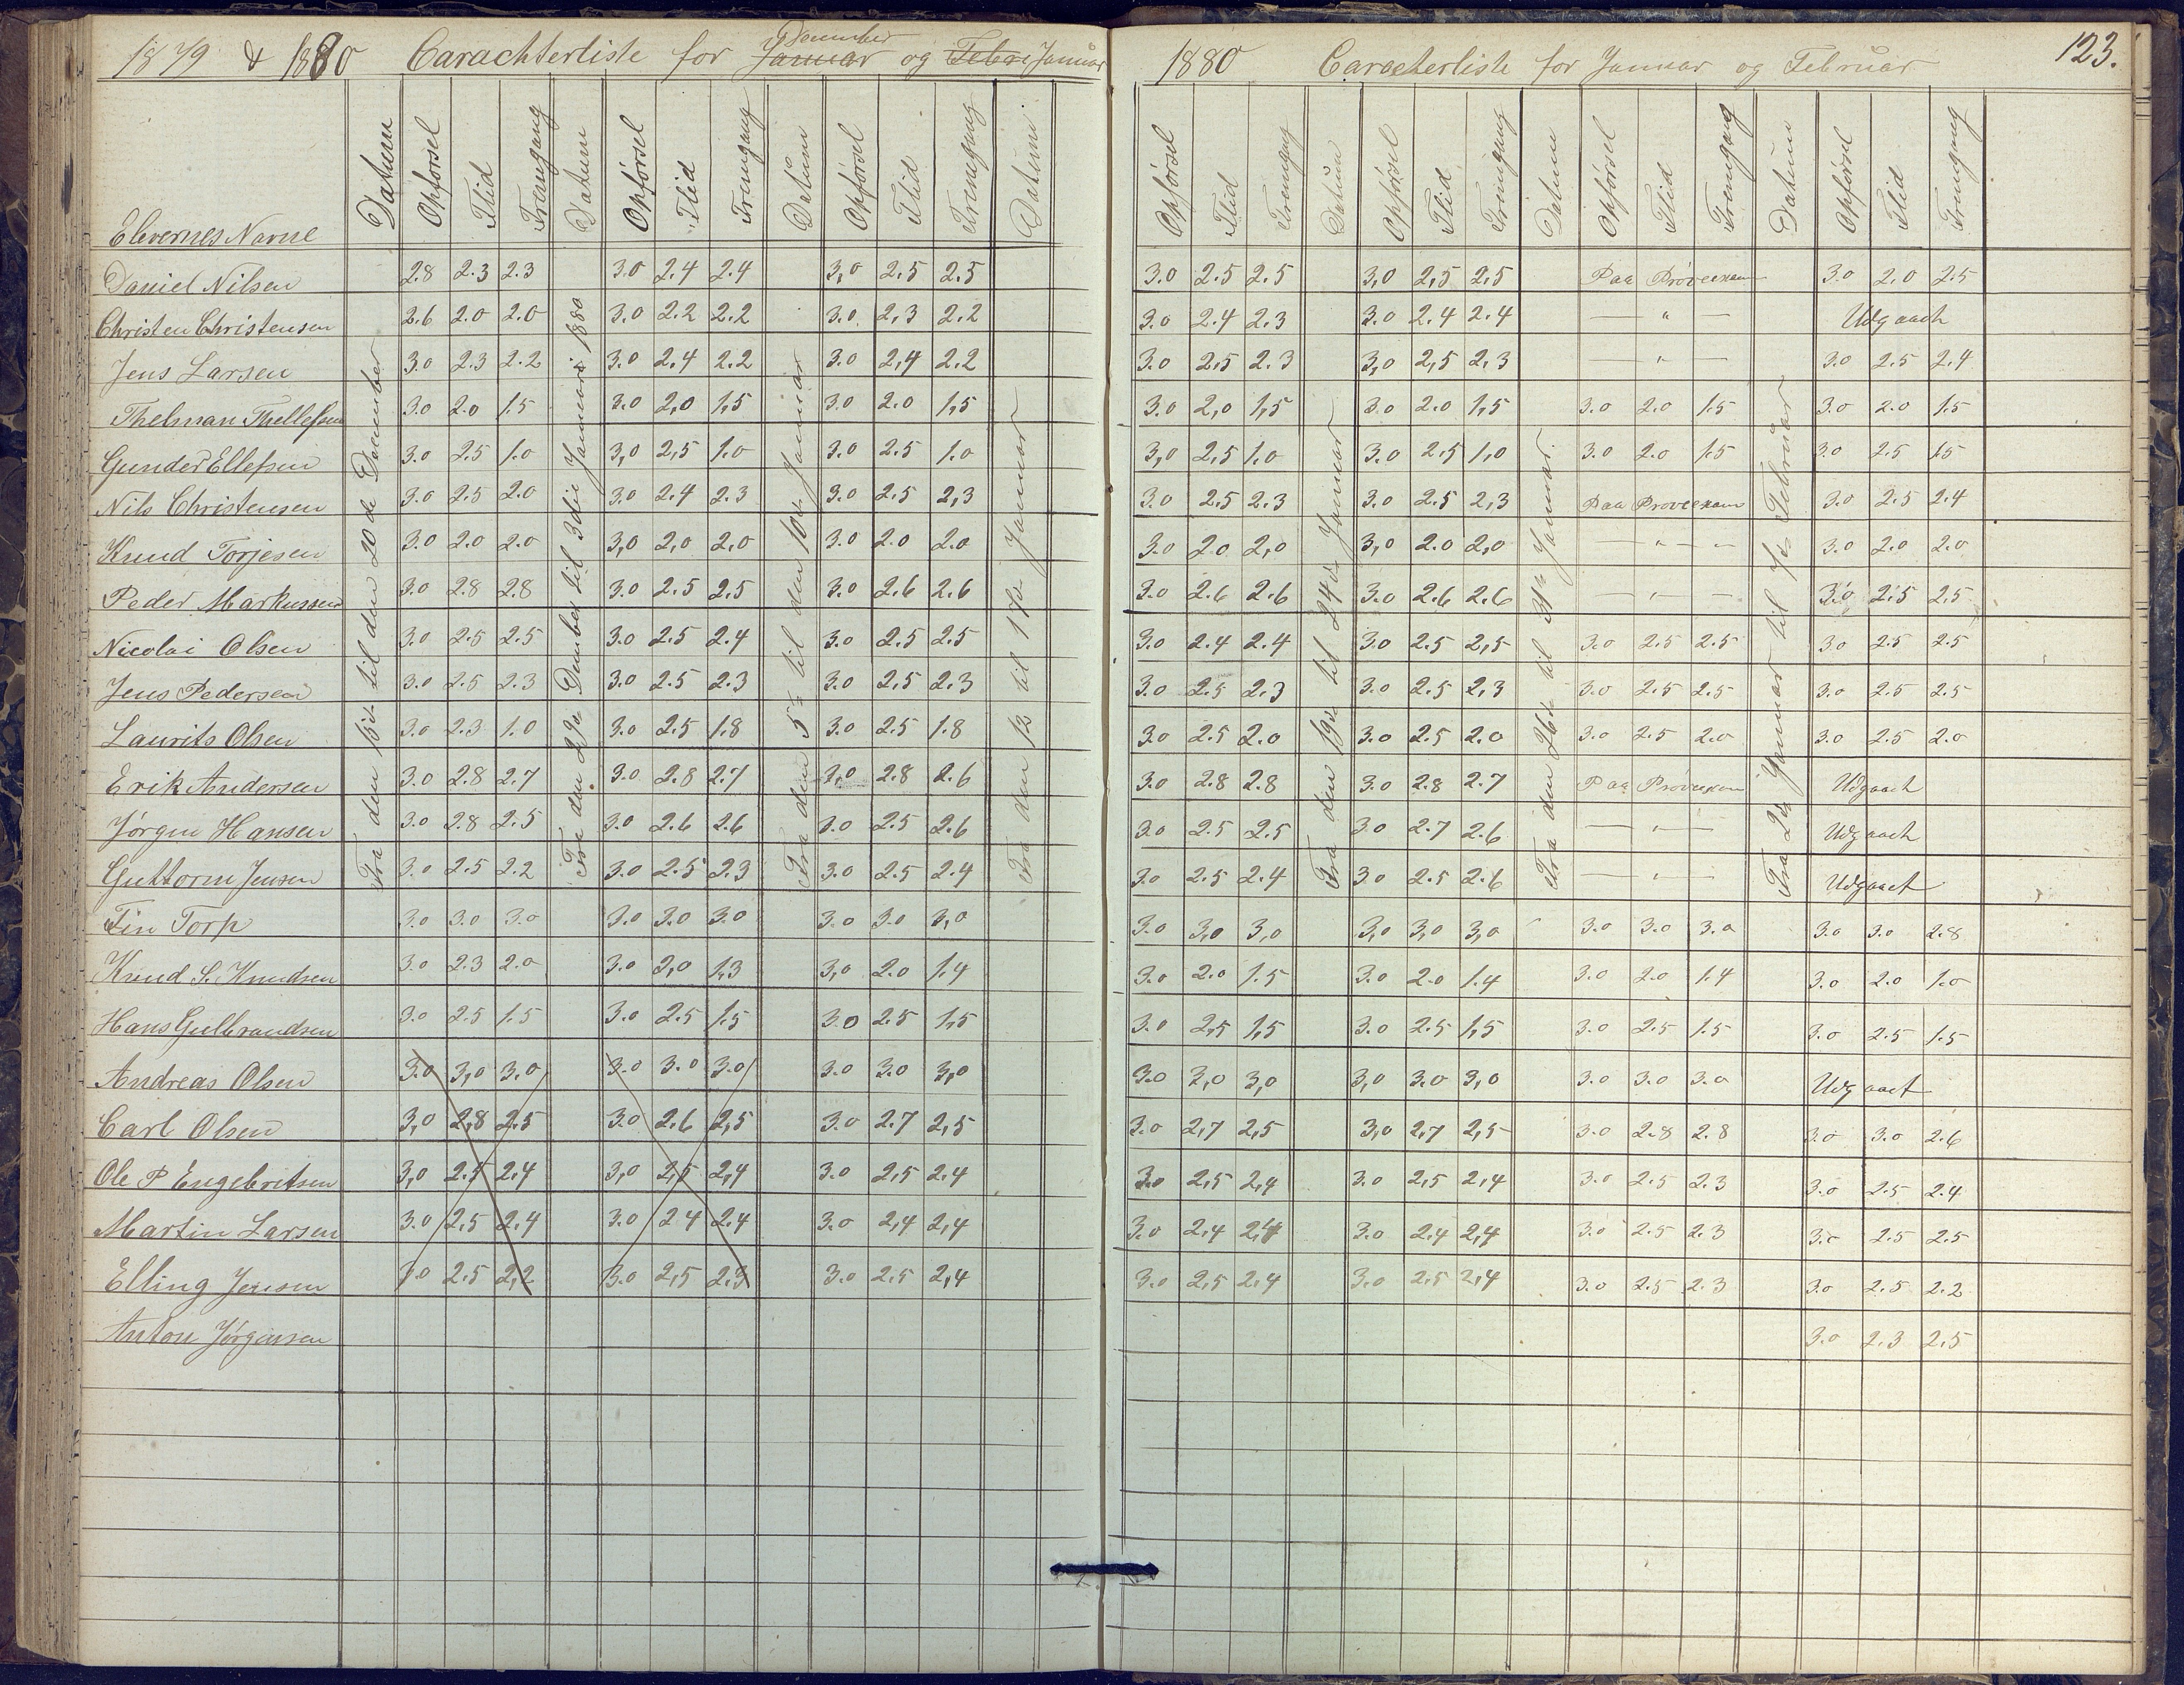 1879 & 1880 Carachterliste for Januar December og Febr Januar
Elevernes Navne Datum Opførsel Flid Fremgang Datum Opførsel Flid Fremgang Datum Opførsel Flid Fremgang Datum
Fra den 15de til den 20de December
Fra den 29de December til 3die Januari 1880
Fra den 5te til den 10de Januar
Fra den 12 til 17de Januar
Daniel Nilsen 2.8 2.3 2.3 3.0 2.4 2.4 3,0 2,5 2.5
Christen Christensen 2.6 2.0 2.0 3.0 2.2 2.2 3.0 2,3 2.2
Jens Larsen 3.0 2.3 2.2 3.0 2.4 2.2 3.0 2,4 2.2
Thelman Thellefsen 3.0 2.0 1.5 3.0 2,0 1,5 3.0 2.0 1,5
Gunder Ellefsen 3.0 2.5 1.0 3,0 2,5 1.0 3.0 2.5 1.0
Nils Christensen 3.0 2.5 2.0 3.0 2.4 2.3 3.0 2.5 2,3
Knud Torjesen 3.0 2.0 2.0 3,0 2,0 2,0 3.0 2.0 2.0
Peder Markussen 3.0 2.8 2.8 3.0 2.5 2.5 3.0 2.6 2.6
Nicolai Olsen 3.0 2.5 2.5 3.0 2.5 2.4 3.0 2.5 2.5
Jens Pedersen 3.0 2.5 2.3 3.0 2.5 2.3 3.0 2,5 2.3
Laurits Olsen 3.0 2.3 1.0 3.0 2.5 1.8 3.0 2.5 1.8
Erik Andersen 3.0 2.8 2.7 3.0 2.8 2.7 3.0 2.8 2.6
Jørgen Hansen 3.0 2.8 2.5 3.0 2.6 2.6 3.0 2.5 2.6
Guttorm Jensen 3.0 2.5 2.2 3.0 2.5 2.3 3.0 2.5 2.4
Fin Torp 3.0 3.0 3.0 3.0 3.0 3.0 3.0 3.0 3,0
Knud S. Knudsen 3.0 2.3 2.0 3.0 2,0 1,3 3,0 2.0 1.4
Hans Gulbrandsen 3.0 2.5 1.5 3.0 2.5 1.5 3.0 2.5 1,5
Andreas Olsen 3.0 3,0 3.0 3.0 3.0 3.0 3.0 3.0 3,0
Carl Olsen 3,0 2,8 2.5 3.0 2.6 2,5 3.0 2.7 2,5
Ole P Engebritsen 3,0 2.5 2.4 3,0 2,5 2,4 3.0 2,5 2.4
Martin Larsen 3.0 2,5 2.4 3.0 2.4 2.4 3.0 2,4 2,4
Elling Jensen 3.0 2.5 2,2 3.0 2,5 2.3 3.0 2.5 2,4
Anton Jørgensen
1880 Caracterliste for Januar og Februar 123.
Opførsel Flid Fremgang Datum Opførsel Flid Fremgang Datum Opførsel Flid Fremgang Datum Opførsel Flid Fremgang
Fra den 19de til 24de Januar
Fra den 26de til 31te Januar.
Fra 2den Januar til 7de Februar
3.0 2.5 2.5 3,0 2,5 2,5 Paa Prøveexam 3.0 2.0 2.5
3.0 2.4 2.3 3.0 2.4 2.4 — " — Udgaaet
3.0 2,5 2.3 3,0 2,5 2,3 — " — 3.0 2.5 2.4
3.0 2,0 1,5 3.0 2.0 1,5 3.0 2.0 1.5 3.0 2.0 1.5
3,0 2,5 1.0 3.0 2.5 1,0 3.0 2.0 1.5 3.0 2.5 1.5
3.0 2,5 2.3 3.0 2.5 2,3 Paa Prøveexam 3.0 2.5 2.4
3.0 2.0 2,0 3,0 2.0 2,0 — " — 3.0 2.0 2.0
3.0 2.6 2.6 3.0 2.6 2.6 — " — 3.0 2.5 2.5
3.0 2.4 2.4 3.0 2.5 2,5 3.0 2.5 2.5 3.0 2.5 2.5
3.0 2.5 2.3 3.0 2.5 2,3 3.0 2.5 2.5 3.0 2.5 2.5
3.0 2.5 2.0 3.0 2.5 2.0 3.0 2.5 2.0 3.0 2.5 2.0
3.0 2.8 2.8 3.0 2.8 2.7 Paa Prøveexam Udgaaet
3.0 2.5 2.5 3.0 2.7 2.6 — " — Udgaaet
3.0 2.5 2.4 3.0 2.5 2.6 — " — Udgaaet
3.0 3,0 3,0 3,0 3,0 3,0 3.0 3.0 3.0 3.0 3.0 2.8
3.0 2.0 1.5 3.0 2.0 1.4 3.0 2.0 1.4 3.0 2.0 1.0
3.0 2,5 1,5 3.0 2.5 1,5 3.0 2.5 1.5 3.0 2.5 1.5
3.0 3,0 3,0 3,0 3.0 3,0 3.0 3.0 3.0 Udgaaet
3.0 2,7 2,5 3,0 2,7 2,5 3.0 2.8 2.8 3.0 3.0 2.6
3.0 2,5 2,4 3.0 2,5 2,4 3.0 2.5 2.3 3.0 2.5 2.4
3.0 2.4 2,4 3.0 2.4 2,4 3.0 2.5 2.3 3.0 2.5 2.5
3.0 2,5 2.4 3.0 2,5 2,4 3.0 2.5 2.3 3.0 2.5 2.2
3.0 2.3 2.5